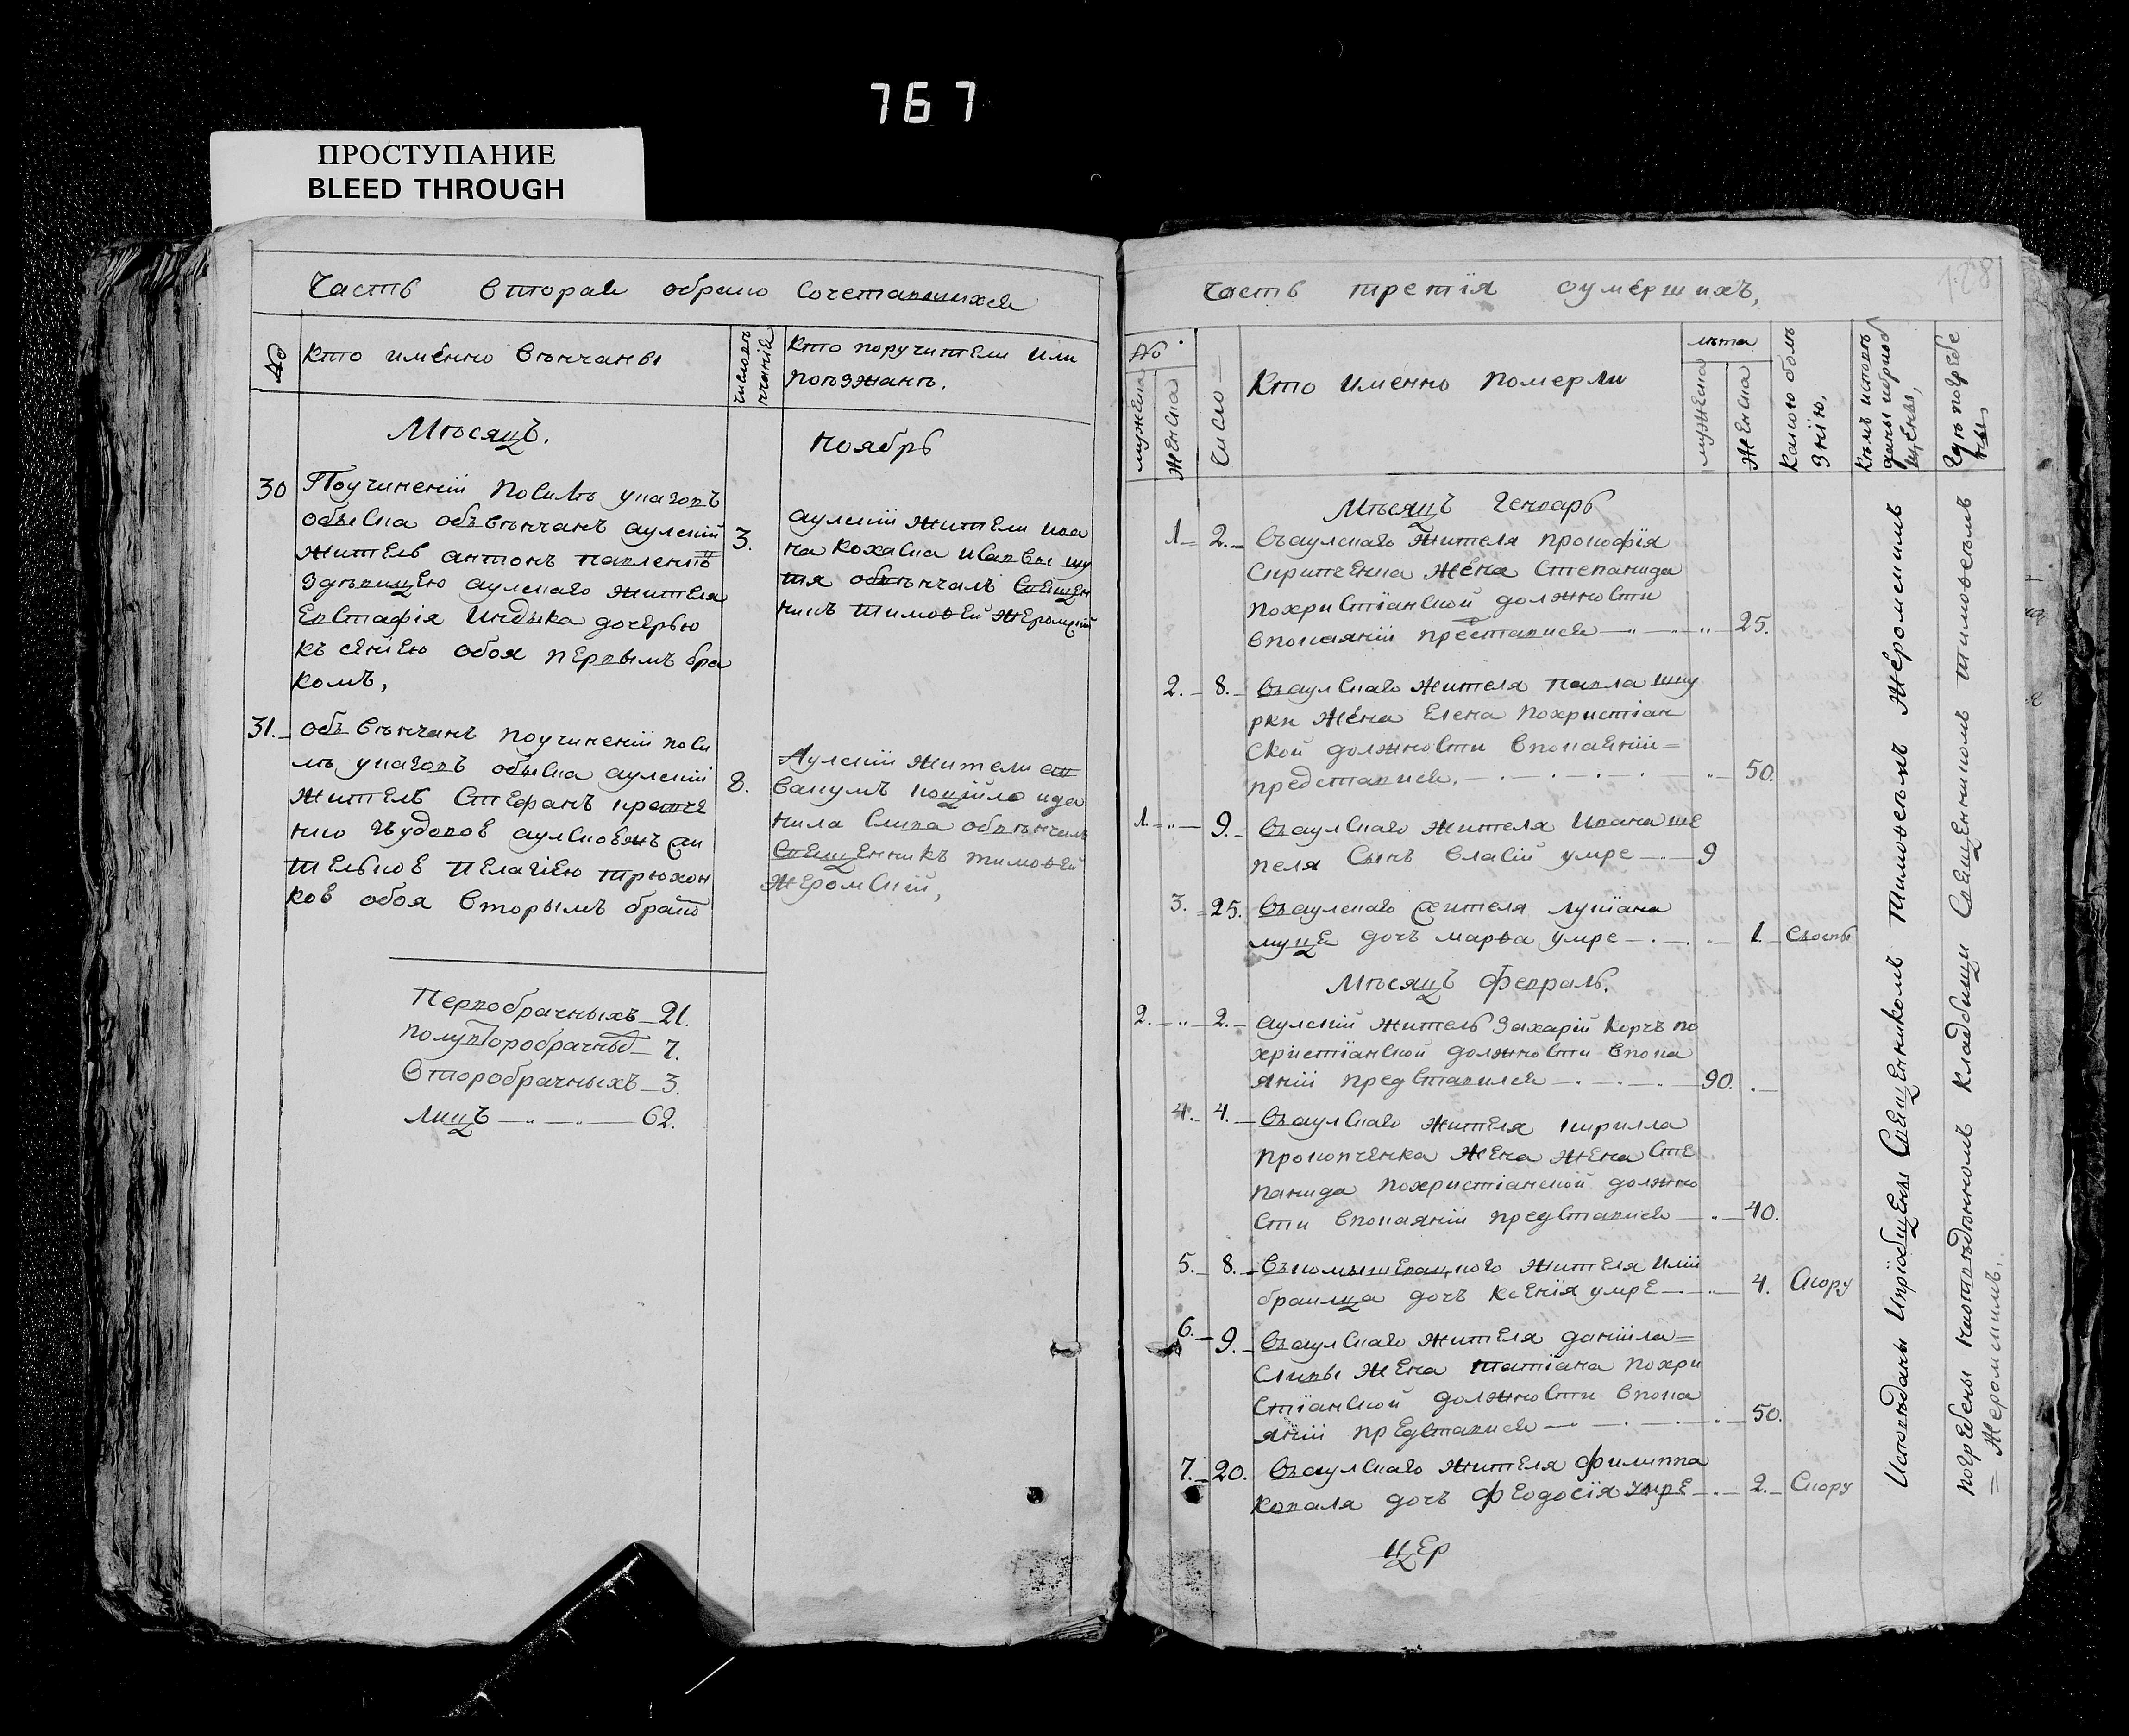 767
ПРОСТУПАНИЕ
BLEED THROUGH
Часть вторая обрако сочетавшихся
№
кто именно венчаны
число вѣнчанія
кто поручители или
поѣзжанѣ.
Мѣсяцъ.
Ноябрь
30
По учиненіи посилѣ указовъ
обыска обвѣнчанъ аулскій
житель антонъ павленко
здѣвицею аулскаго жителя
Евстафія Индыка дочерью
Ксеніею обоя первымъ бра
комъ,
3.
аулскій жители ива
на кохана исаввы шу
тя обвѣнчалъ Свещен
никъ Тимоѳей Жеромскій
31.
обвѣнчанъ поучиненіи поси
лѣ указовъ обыска аулскій
житель Стефанъ
вдовое аулскоѣ жи
телькоѣ Пелагіею трюхон
ковъ обоя вторымъ брако
8.
Аулскій жители
вакумъ коцюло ида
нила слипа обвѣнчалъ
Свещенникъ тимоѳей
Жеромскій,
Первобрачныхъ 21.
Полувторобрачных 7.
Второбрачныхъ 3.
Лицъ 62.
Часть третія оумершихъ,
128
№
мужеска
женска
число
Кто именно померли
лѣта
мужеска
женска
Какою болѣ
знію,
Кѣмъ исповѣ
даны и пріоб
щены,
Гдѣ погребе
ны
Мѣсяцъ Генварь
1 2. Въаулскаго жителя прокофія
Скрипченка жена Степанида
похристіанской должности
впокаяніи преставися 25.
2. 8. Въаулскаго жителя павла шпу
рки жена Елена похристіан
ской должности впокаяніи
представися. 50.
1. 9. Въаулскаго жителя Ивана ше
пеля сынъ власій умре 9
3. 25. Въаулскаго жителя лукіана
муце дочъ марѳа умре 1. Съоспы
Мѣсяцъ Февраль.
2. 2. аулскій житель Захарій корчъ по
христіанской должности впока
яніи представился 90.
4. 4. Въаулскаго жителя кирилла
прокопченка жена жена Сте
панида похристіанской должно
сти впокаяніи представися 40.
5. 8. Въкомышевацкого жителя иліи
браилца дочъ ксенія умре 4. Скору
6. 9. Въаулскаго жителя даніила
слипы жена татіана похри
стіанской должности впока
яніи представися 50.
7. 20. Въаулскаго жителя филиппа
коваля дочъ феодосія умре 2. Скору
цер
Исповѣданы Ипріобщены Священникомъ Тимоѳеемъ Жеромскимъ
погребены наотвѣденномъ кладбищи Священникомъ Тимоѳеемъ
= Жеромскимъ.